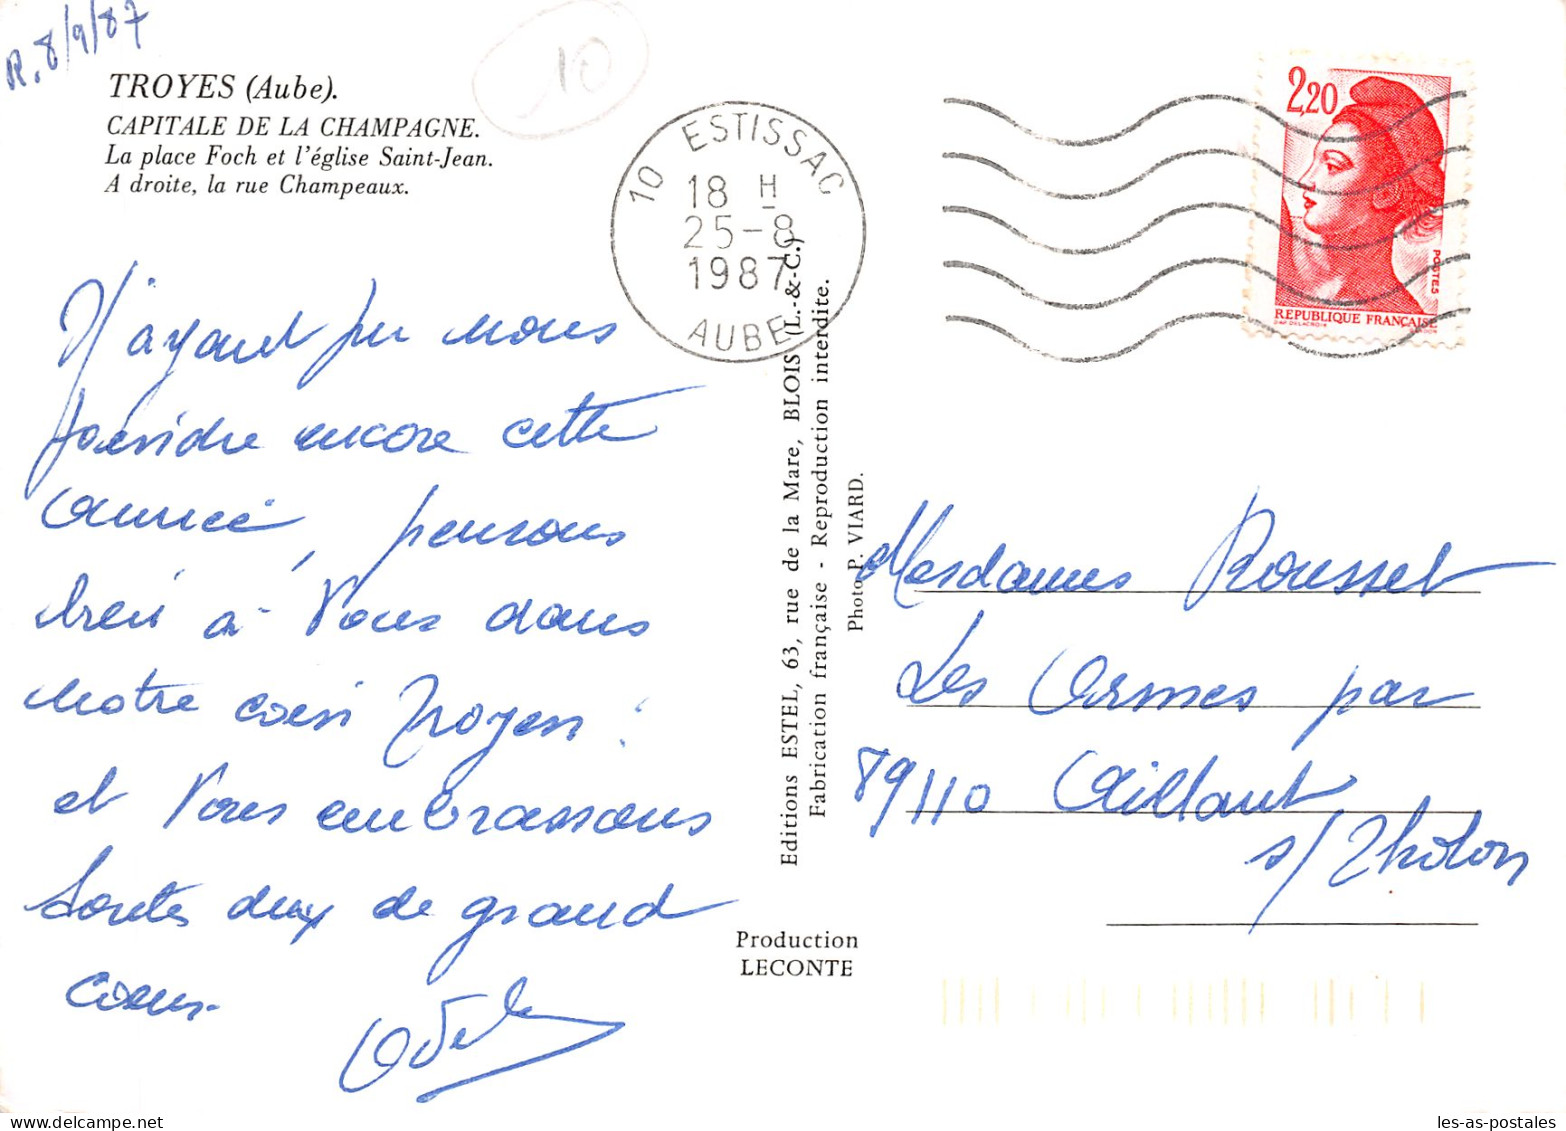 R. 8/9/87
10
TROYES (Aube).
CAPITALE DE LA CHAMPAGNE.
La place Foch et l'église Saint-Jean.
A droite, la rue Champeaux.
10 ESTISSAC
18 H
25-8
1987
AUBE
2,20
POSTES
REPUBLIQUE FRANÇAISE
N'ayant pu nous
joindre encore cette
année, pensons
bien à Vous dans
notre coin Troyen !
et Vous embrassons
toutes deux de grand
coeur.
Odile
Editions ESTEL, 63, rue de la Mare, BLOIS (L.-&-C.)
Fabrication française - Reproduction interdite.
Photo P. VIARD.
Production
LECONTE
Mesdames Rousset
Les Ormes par
89110 Aillant
s/Tholon
les-as-postales